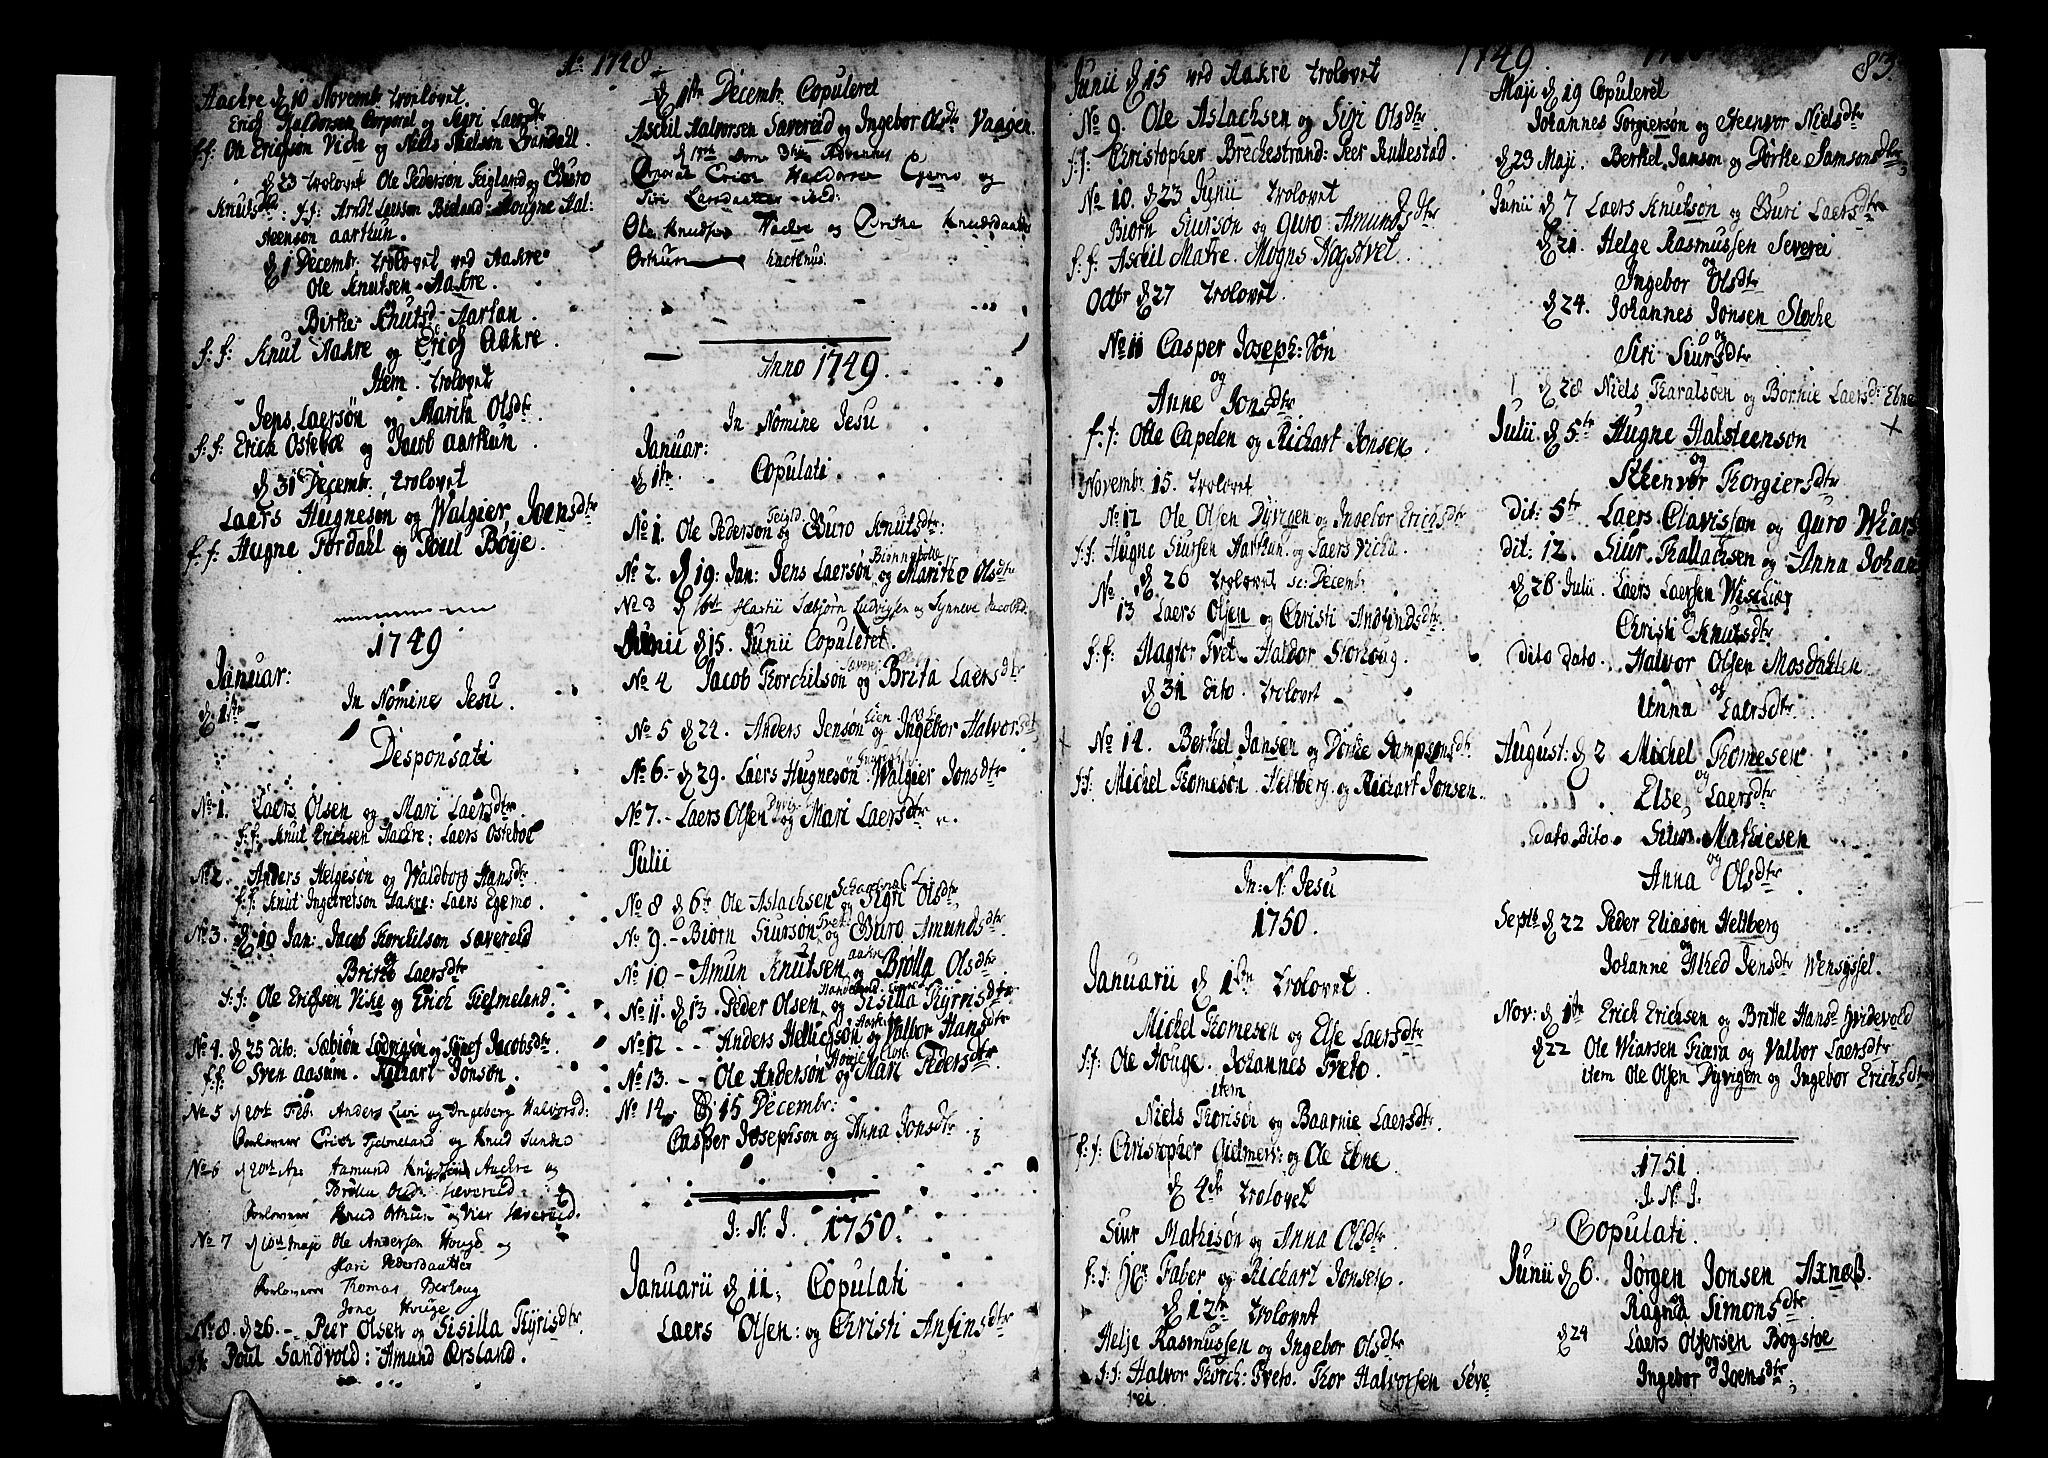 Ao 1748
Aackre d 10 Novembr trolovet.
Erich Haldorsen Corporal og Segri Laersdtr
f: f: Ole Erichsen Viche og Niels Nielson
d 23 trolovet Ole Pedersøn Feigland og Guro
Knutsdtr: f: f: Arndt Laerson: Hougne Hal:
steensøn aarthun.
d 1 Decembr. trolovet ved Aakre
Ole Knutsen Aakre.
og
Birthe Knutsd Aartun.
f: f: Knut Aakre og Erich Aakre.
Item. trolovet
Jens Laersøn og Marith Olsdtr.
f: f: Erich Ostebæ og Jacob aarthun.
d 31 Decembr. trolovet
Laers Hugnesøn og Walgier Joensdtr
f: f: Hugne Tordahl og Poul Böye.
1749
Januar:
d 1ste
In Nomine Jesu.
Desponsati
No 1. Laers Olsen og Mari Laersdtr.
f: f: Knut Erichsen Aakre: Laers Ostebøe
No 2. Anders Helgesøn og Waldborg Hansdtr.
f: f: Knut Ingebretson Aakre: Laers Egemo.
No 3. d 19 Jan: Jacob Thorchilson Sævereid
og
Britte Laersdtr
f: f: Ole Erichsen Viche og Erich Fielmeland.
No 4. d 25 dito: Sæbiøn Lodvigsøn og Synef Jacobsdtr.
f: f: Sven Aasum. Richart Jonsøn.
No 5 d 20th Feb. Anders Lien og Ingeborg Halvorsd:
Forlovere Erich Fjelmeland og Knud Sunde
No 6 d 20th Ap: Aamund Knudsen Aackre og
Brölla Olsd: Sævereid.
Forlovere Knud Orthun og Sævereid.
No 7 d 10th Maji Ole Andersen Houge og
Mari Pedersdaatter
Forlovere Thomas Berhoug
Jone Houge
No 8. d 26. - Peer Olsen og Sisilla Thyrisdtr.
f: f: Poul Sandvold: Amund Ørsland.
d 1ste Decembr. Copuleret
Aschil Halvorsen Savereid og Ingebor Olsdtr Vaagen
d 15th Dom: 3tia Adventus
Corporal Erich Haldorsen Egemo og
Siri Larsdaatter ibid:
Ole Knudsen Aackre og Birthe Knudsdaatter
Orthun
Anno 1749.
In Nomine Jesu
Januar:
d 1ste. Copulati.
No 1. Ole Pederson Feigl. og Guro Knutsdtr:
No 2. d 19: Jan: Jens Laersøn og Marithe Olsdtr
No 3 d 16th Martii Sæbjørn Ludvigsen og Synneve Jacobsd:
Junii d 15. Junii Copuleret.
No 4 Jacob Thorchilson Saverei og Brita Laersdtr
No 5 d 22. Anders Jensøn Lien og Ingebor Halvorsdtr
No 6. - d 29. Laers Hugnesøn Walgier Jonsdtr
No 7. - Laers Olsen og Mari Laersdtr.
Julii
No 8 d 6te Ole Aslachsen og Sigri Olsdtr
No 9. - Biorn Siursøn Tvet og Guro Amundsdtr.
No 10 - Amun Knutsen Aakre og Brölla Olsdtr
No 11. d 13. Peder Olsen og Sisilla Thyrisdtr
No 12 - - Anders Hellichsøn og Valbor Hansdtr
No 13. - - Ole Andersøn Houge og Mari Pedersdtr.
No 14. d 15 Decembr:
Casper Josephson og Anna Jonsdtr.
J: N: J. 1750.
Januarii d 11, Copulati
Laers Olsen: og Christi Anfinsdtr
1749
83.
Junii d 15 ved Aakre trolovet
No 9. Ole Aslachsen og Siri Olsdtr
f: f: Christopher Brechestrand: Peer Rullestad
No 10. d 23 Junii trolovet
Biorn Siursøn og Guro Amundsdtr
f: f: Aschil Matre. Mogns Hogstvet.
Octbr d 27 trolovet.
No 11 Casper Joseph: Søn
og
Anne Jonsdtr
f: f: Otte Capelen og Richart Jonsen.
Novembr 15. trolovet
No 12 Ole Olsen Dyvigen og Ingebor Erichsdtr
f: f: Hugne Siursen Aarthun. og Laers Vicha.
d 26 trolovet sc: Decemb
No 13 Laers Olsen og Christi Anfindsdtr.
f: f: Hagtor Tvet Haldor Storhoug.
d 31 dito. trolovet
No 14. Berthel Jansen og Dorthe Sampsonsdtr.
f: f: Michel Thomesøn. Heltberg og Richart Jonsen.
In: N: Jesu
1750.
Januarii d 1ste trolovet.
Michel Thomesen og Else Laersdtr
f: f: Ole Houge. Johannes Tveto.
item
Niels Thorisøn og Baarnie Laersdtr.
f: f: Christopher Gielmers: og Ole Ebne.
d 4de trolovet
Siur Mathisøn og Anna Olsdtr.
f: f: Hr Faber og Richart Jonsen.
d 12te trolovet
Helje Rasmussen og Ingebor Olsdtr
f: f: Halvor Thorch: Tveto. Thor Halvorsen Seve
rei.
Maji d 19 Copuleret
Johannes Torgiersøn og Steenvor Nielsdtr
d 23 Maji. Berthel Janson og Dorthe Samsonsdtr
Junii d 7 Laers Knutsøn og Guri Laersdtr
d 21. Helge Rasmussen Severei
og
Ingebor Olsdtr
d 24. Johannes Jonsen Stoche
og
Siri Siursdtr
d 28 Niels Tharalsøen og Bornie Laersd: Ebne
Julii d 5te Hugne Halsteenson
og
Steenvor Thorgiersdtr
dit: 5te Laers Clavistan og Guro Wiars
dit: 12. Siur Thallachsen og Anna Johan
d 26 Julii. Laers Laersen
og
Christi Knutsdtr
dito dato. Halvor Olsen Mosdahlen
og
Anna Laersdtr.
August: d 2 Michel Thomesen
og
Else Laersdtr
dato dito. Siur Mathiesen
og
Anna Olsdtr.
Septb d 22 Peder Eliasøn Heltberg
og
Johanne Alhed Jensdtr Wensyssel.
Nov: d 1ste Erick Erichsen og Britte Hansd Hvidevold
d 22 Ole Wiarsen Fiæra og Valbor Laersdtr
item Ole Olsen Dyvigen og Ingebor Erichsdtr
1751.
J. N. J.
Copulati.
Junii d 6. Jørgen Jonsen Axnæs.
Ragna Simonsdtr
d 24 Laers Bogstoe
og
Ingebor Joensdtr,